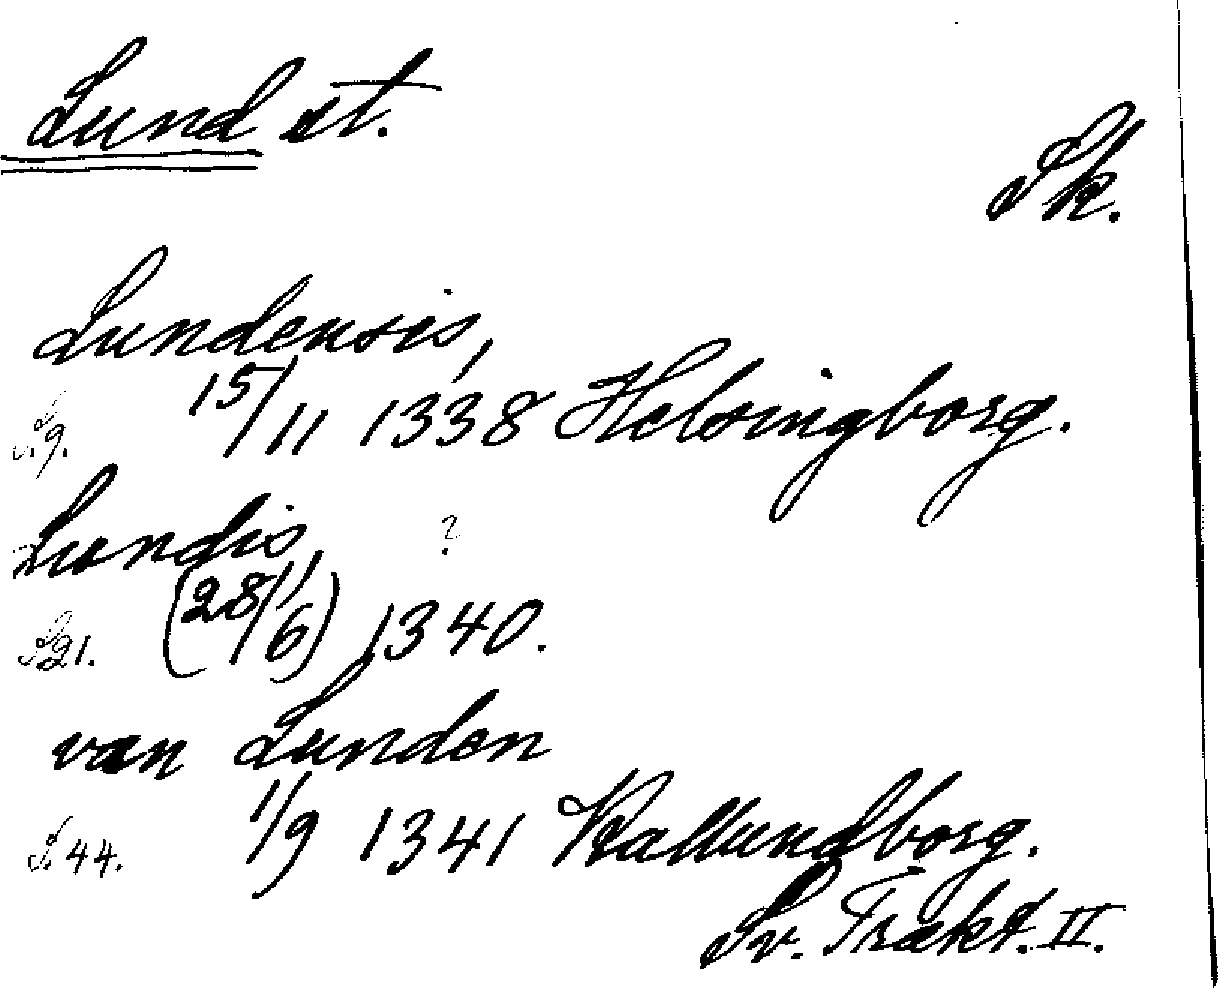 Lund st.
Sk.
Lundensis,
S. 9. 15/11 1338 Helsingborg.
Lundis, ?
S. 21. (28/6) 1340.
van Lunden
S. 44. 1/9 1341 Kallundborg.
Sv. Trakt. II.